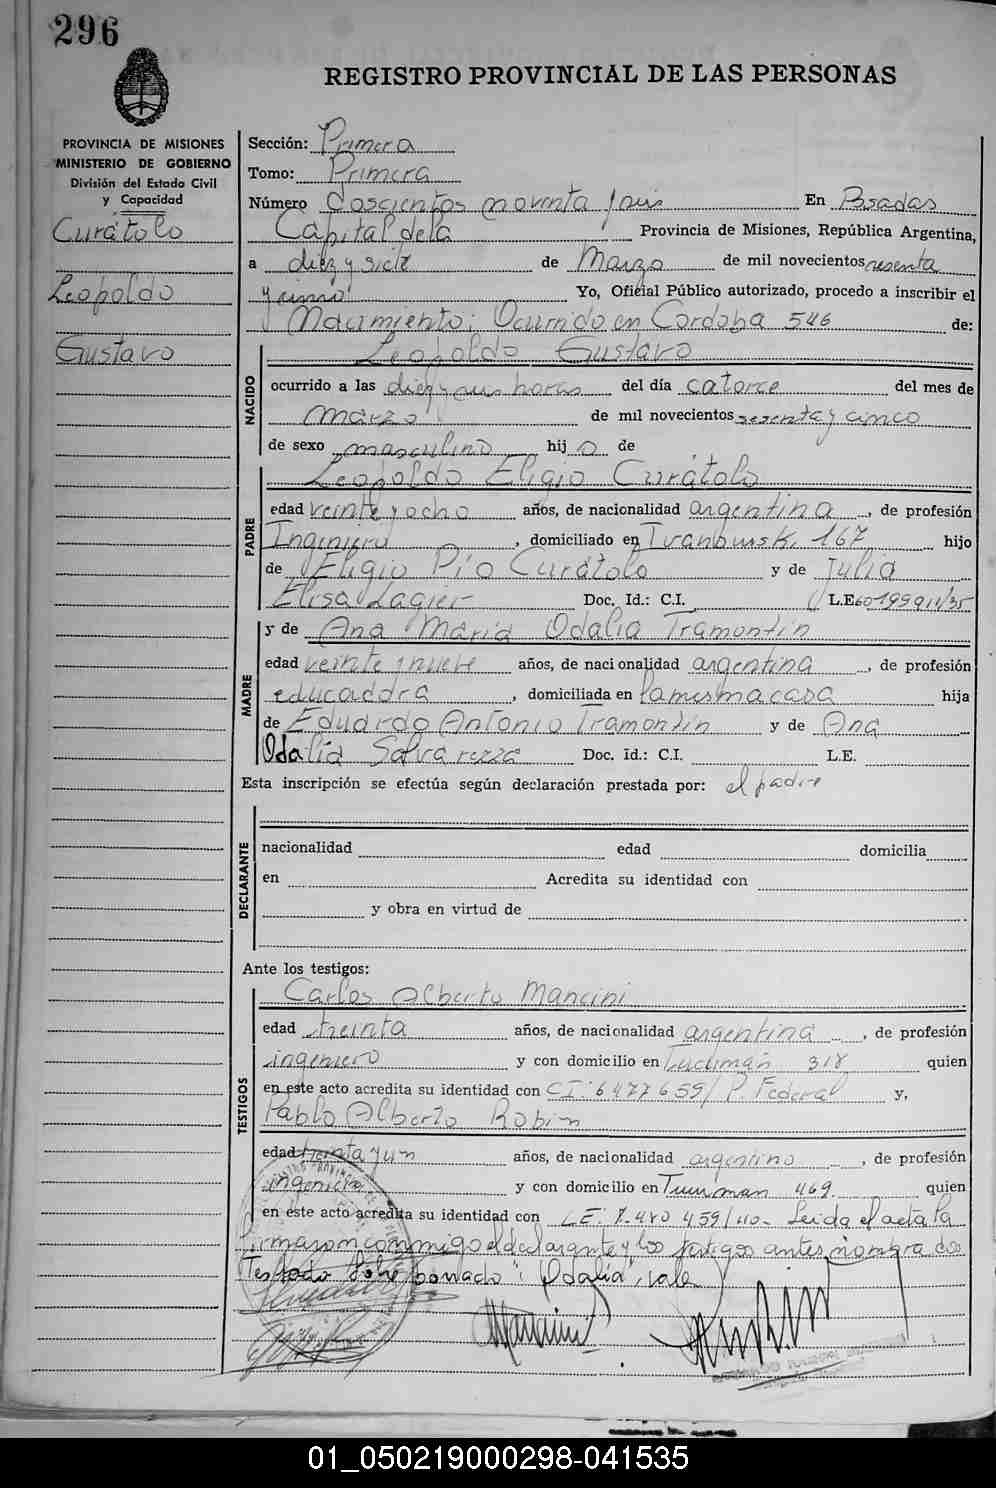 296
REGISTRO PROVINCIAL DE LAS PERSONAS
PROVINCIA DE MISIONES
MINISTERIO DE GOBIERNO
División del Estado Civil
y Capacidad
Curátolo
Leopoldo
Gustavo
Sección: Primera
Tomo: Primera
Número Doscientos noventa y seis En Posadas
Capital de la Provincia de Misiones, República Argentina,
a diez y siete de Marzo de mil novecientos sesenta
y cinco Yo, Oficial Público autorizado, procedo a inscribir el
Nacimiento: Ocurrido en Cordoba 546 de:
Leopoldo Gustavo
NACIDO
ocurrido a las diez y seis horas del día catorce del mes de
marzo de mil novecientos sesenta y cinco
de sexo masculino hij o de
Leopoldo Eligio Curátolo
PADRE
edad veinte y ocho años, de nacionalidad argentina, de profesión
Ingeniero, domiciliado en 167 hijo
de Eligio Pio Curátolo y de Julia
Elisa Lagier Doc. Id.: C.I. L.E.
y de Ana María Odalia Tramontin
MADRE
edad veinte y nueve años, de nacionalidad argentina, de profesión
educadora, domiciliada en la misma casa hija
de Eduardo Antonio Tramontin y de Ana
Odalia Salvarezza Doc. id.: C.I. L.E.
Esta inscripción se efectúa según declaración prestada por: el padre
DECLARANTE
nacionalidad edad domicilia
en Acredita su identidad con
y obra en virtud de
Ante los testigos:
Carlos Alberto Mancini
TESTIGOS
edad treinta años, de nacionalidad argentina, de profesión
ingeniero y con domicilio en Tucumán 318 quien
en este acto acredita su identidad con CI: 6477659/ P. Federal y,
Pablo Alberto Robin
edad treinta y un años, de nacionalidad argentino, de profesión
ingeniero y con domicilio en Tucuman 469 quien
en este acto acredita su identidad con L.E: 459/40- Leida el acta la
firmaron conmigo el declarante y los testigos antes nombrados
Testado Sobre borrado: "Odalia", vale
01_050219000298-041535